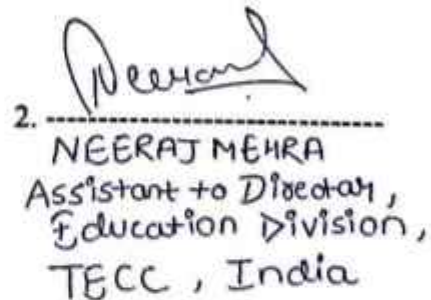 Neeraj
2. ----------------------------------
NEERAJ MEHRA
Assistant to Director,
Education Division,
TECC, India